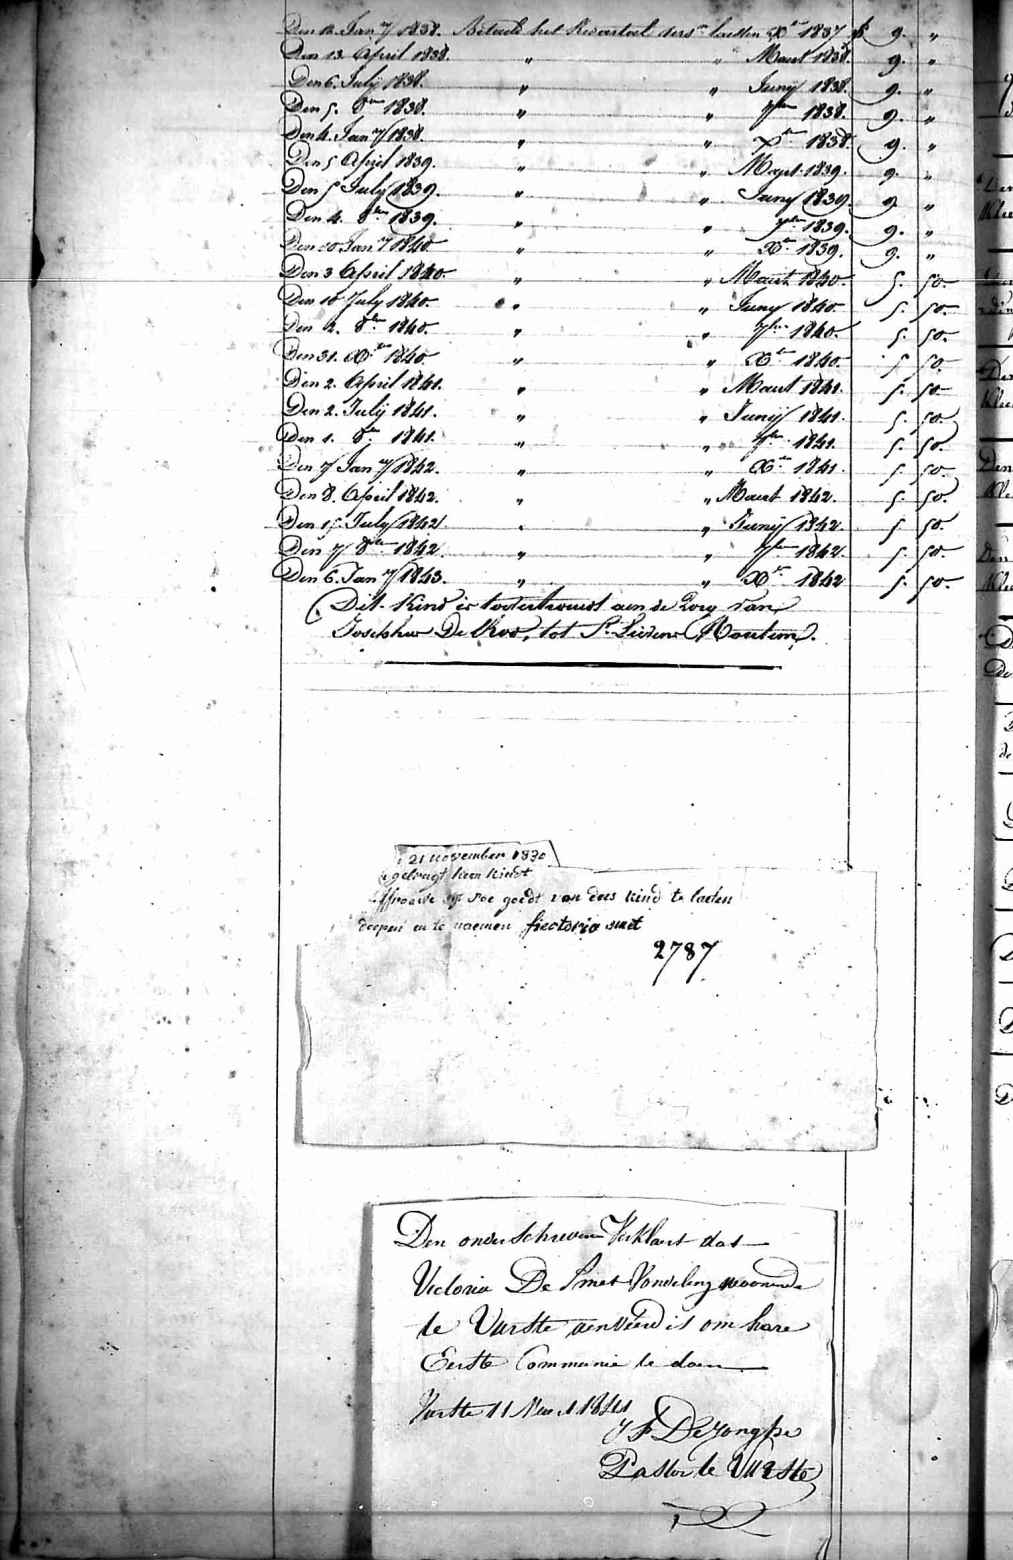 Den 12. Jan.y 1838. Betaelt het Kwartael verv.n laetsten Xb. 1837 f 9. "
Den 13. April 1838. " " Maert 1838. 9. "
Den 6. July 1838. " " Junij 1838. 9. "
Den 5. 8ber 1838. " " 7ber 1838. 9. "
Den 4. Jan.y 1838. " " Xb. 1838. 9. "
Den 5 April 1839. " " Maert. 1839. 9. "
Den 5 July 1839. " " Juny 1839. 9 "
Den 4. 8ber 1839. " " 7ber 1839. 9. "
Den 10 Jan.y 1840. " " Xb. 1839. 9. "
Den 3 April 1840. " " Maert 1840. 5. 50.
Den 10 July 1840. " " Juny 1840. 5. 50.
Den 2. 8b. 1840. " " 7ber 1840. 5. 50.
Den 31. Xber 1840. " " Xb. 1840. 5 50.
Den 2. April 1841. " " Maert 1841. 5. 50
Den 2. Julij 1841. " " Junij 1841. 5. 50.
Den 1. 8b. 1841. " " 7ber 1841. 5. 50.
Den 7 Jan.y 1842. " " Xb. 1841. 5. 50
Den 8. April 1842. " " Maert 1842. 5. 50.
Den 15. July 1842 " " Junij 1842. 5. 50.
Den 7 8ber 1842. " " 7ber 1842. 5. 50.
Den 6. Jan.y 1843. " " Xb. 1842 5. 50.
Dit Kind is toevertrouwt aen de Zorg van
Josephus De Vos, tot St. Lievens Houtem.
21 november 1830
gebragt een kindt
goedt van dees kind te laeten
doopen en te naemen fictoria smet
2787
Den onderschreven Verklaert dat
Victoria De Smet Vondeling woonende
te Vurste aenveerd is om hare
Eerste Communie te doen
Vurste 11 Meert 1841
J F De Jonghe
Pastor te Vurste